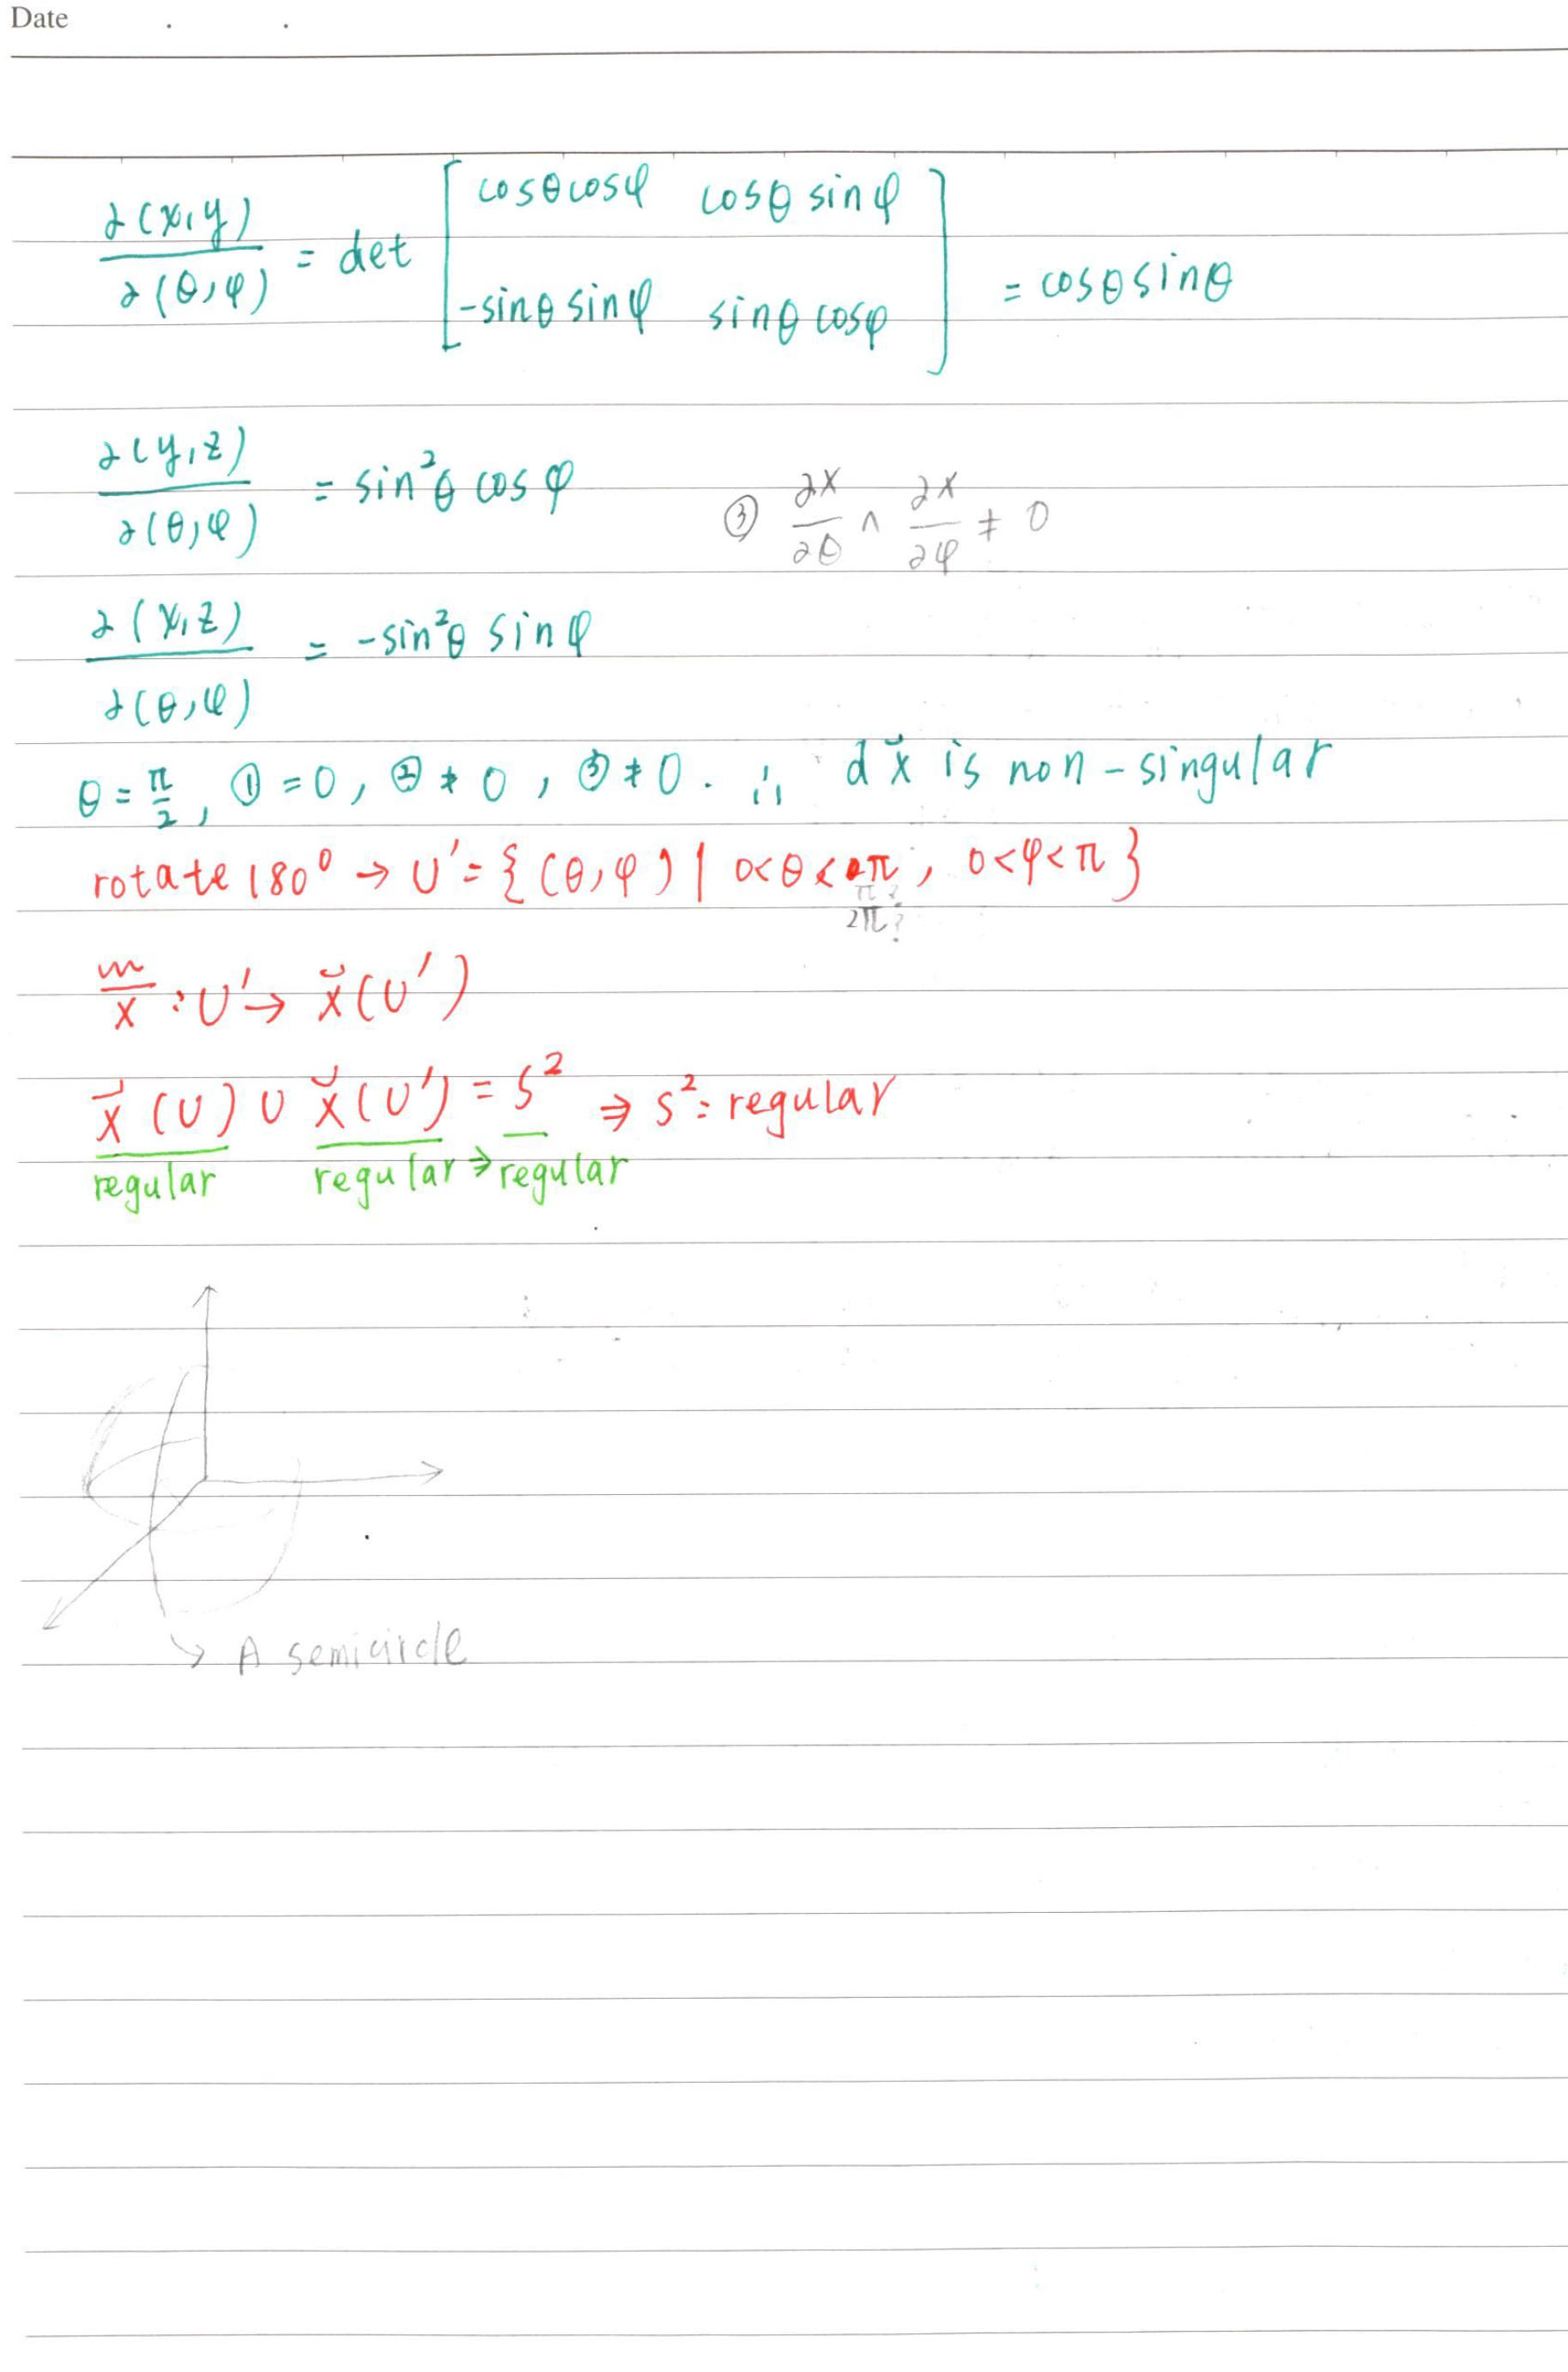 Date
∂(x,y)/∂(θ,φ) = det [ cosθcosφ cosθ sinφ ; -sinθ sinφ sinθ cosφ ] = cosθsinθ
∂(y,z)/∂(θ,φ) = sin²θ cosφ
③ ∂x/∂θ ∧ ∂x/∂φ ≠ 0
∂(x,z)/∂(θ,φ) = -sin²θ sinφ
θ = π/2, ① = 0, ② ≠ 0, ③ ≠ 0. ∴ dx̆ is non-singular
rotate 180° → U' = {(θ,φ) | 0<θ<2π, 0<φ<π}
π?
2π?
: U' → x̆(U')
x⃗(U) ∪ x̆(U') = S² ⇒ S²: regular
regular regular ⇒ regular
→ A semicircle